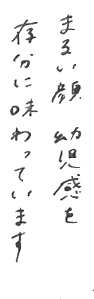 まるい顔 幼児感を
存分に味わっています